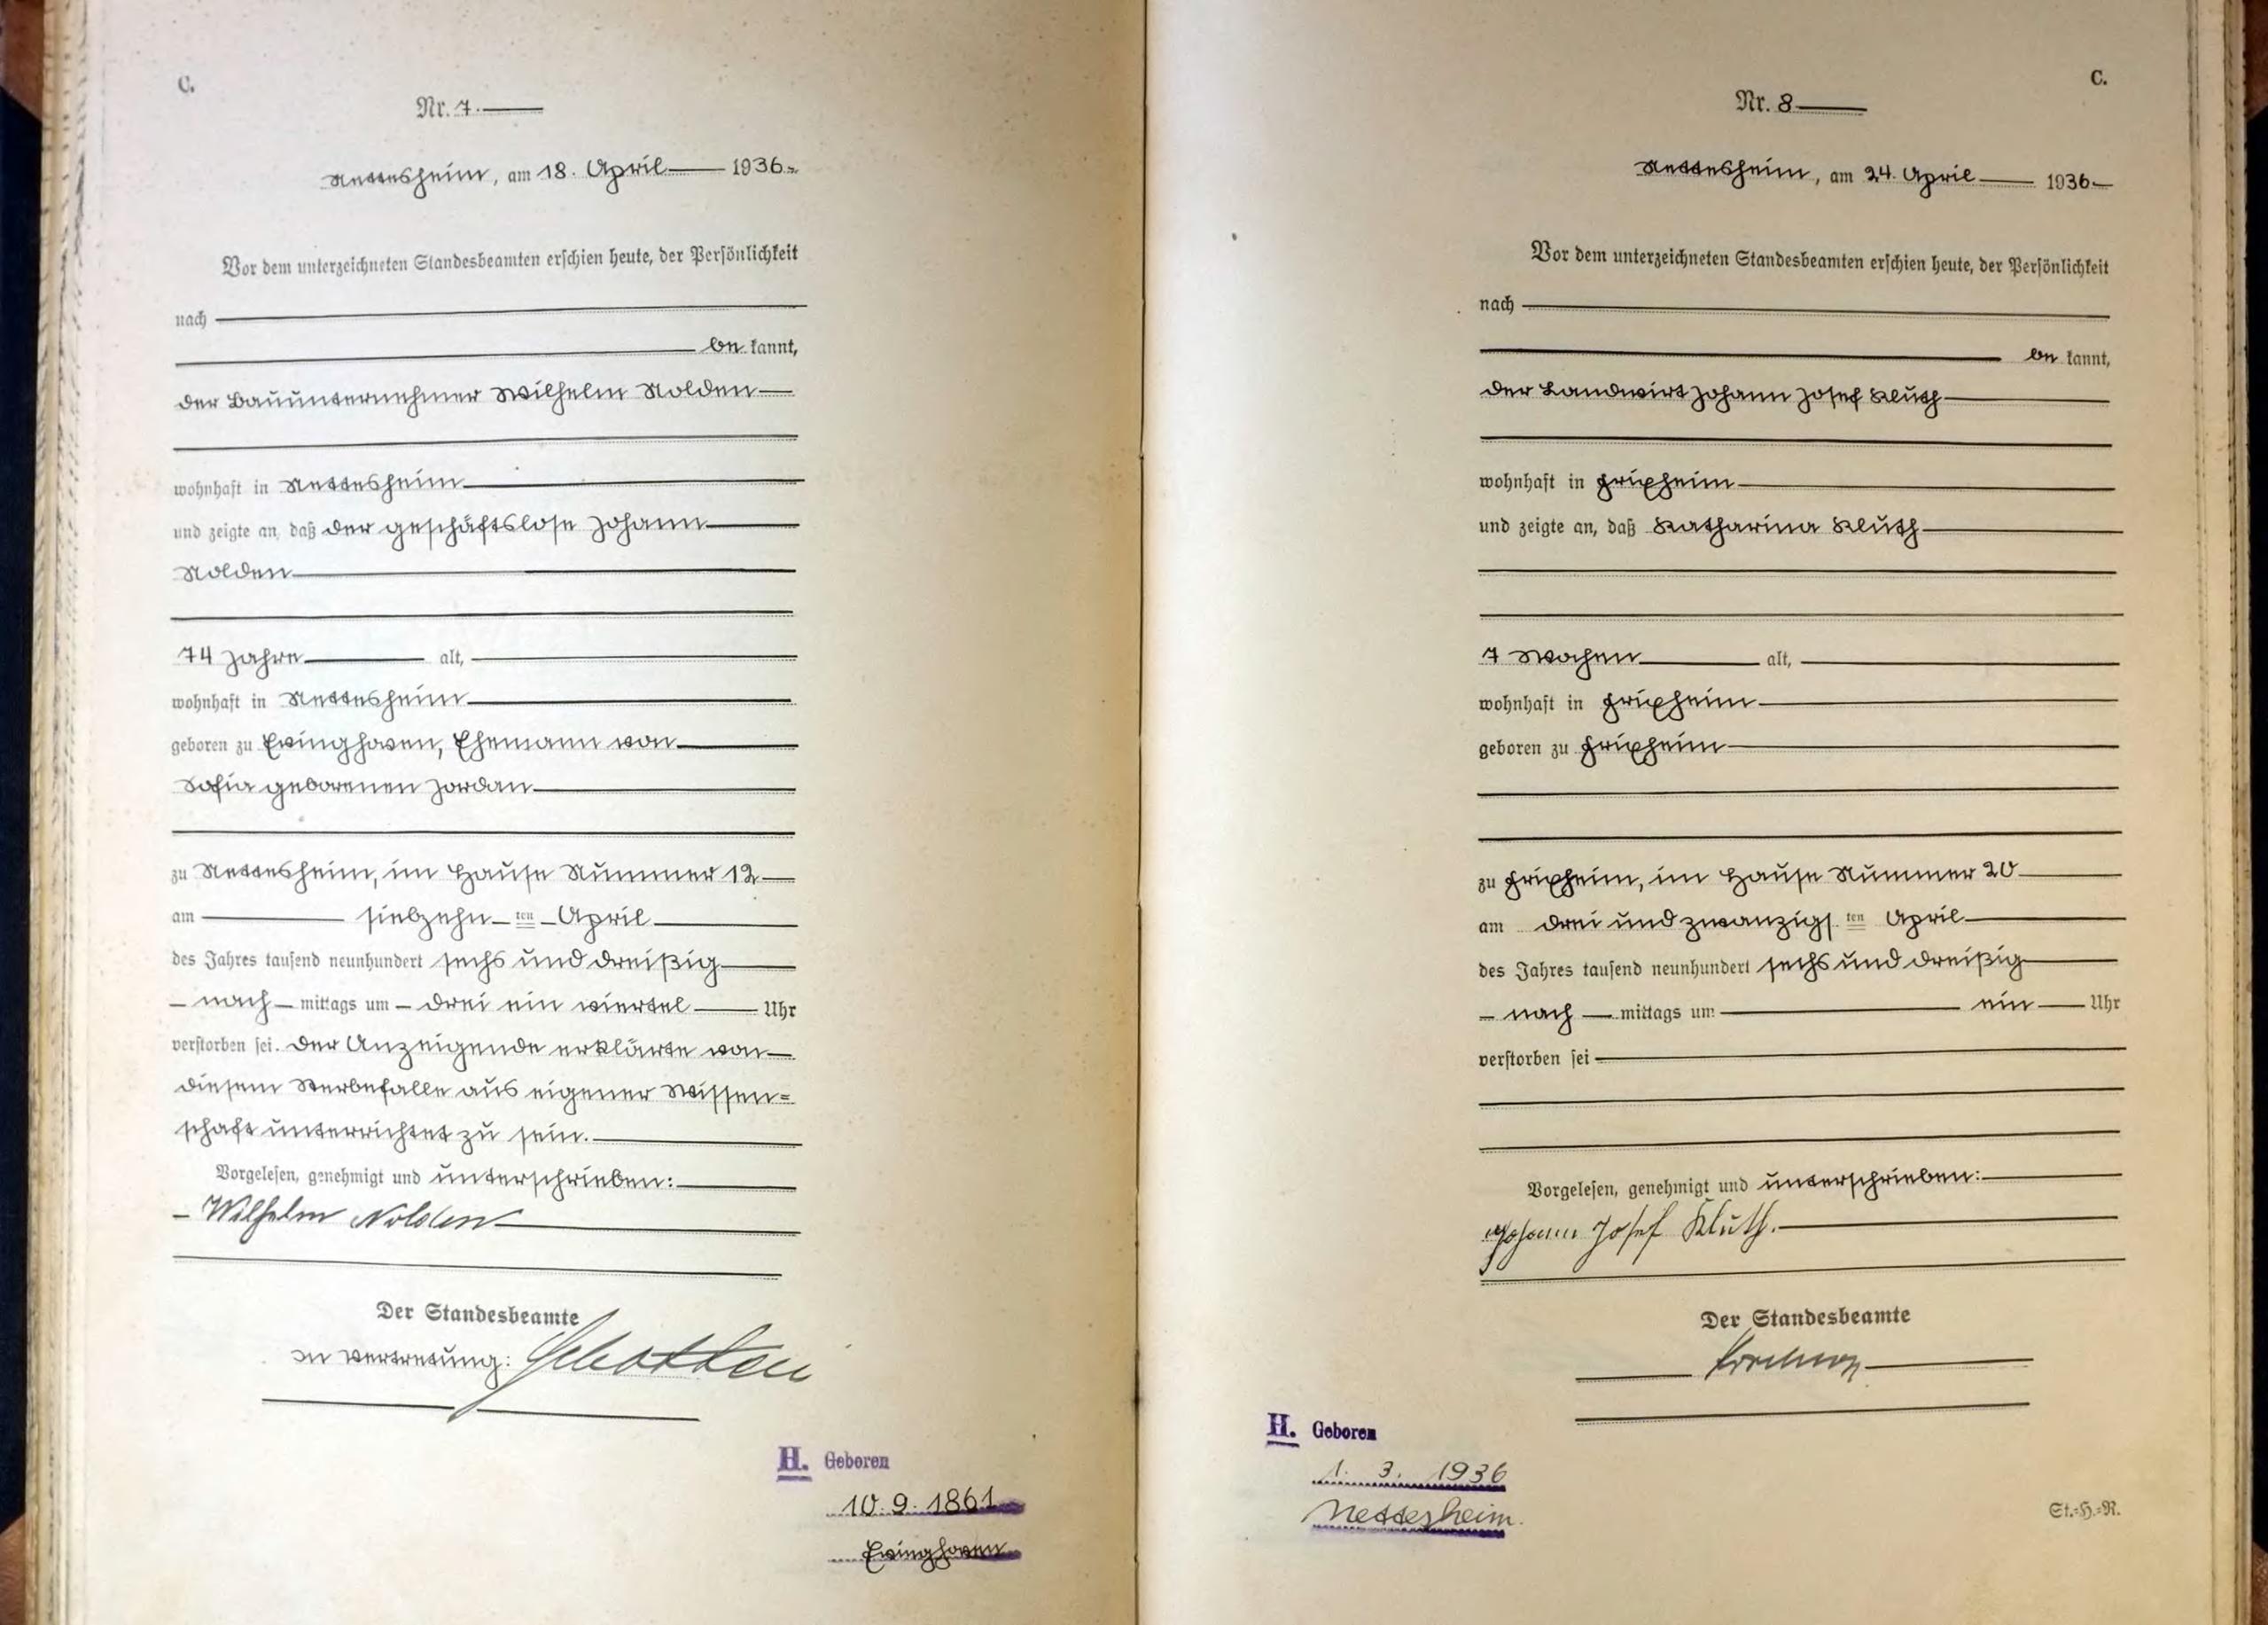 C.
Nr. 7.
Nettesheim, am 18. April 1936.
Vor dem unterzeichneten Standesbeamten erschien heute, der Persönlichkeit
nach
be kannt,
der Bauunternehmer Wilhelm Nolden
wohnhaft in Nettesheim
und zeigte an, daß der geschäftslose Johann
Nolden
74 Jahre alt,
wohnhaft in Nettesheim
geboren zu Evinghoven, Ehemann von
Sofia geborenen Jordan
zu Nettesheim, im Hause Nummer 12
am siebzehn ten April
des Jahres tausend neunhundert sechs und dreißig
nach mittags um drei ein viertel Uhr
verstorben sei. Der Anzeigende erklärte von
diesem Sterbefalle aus eigener Wissen=
schaft unterrichtet zu sein.
Vorgelesen, genehmigt und unterschrieben:
Wilhelm Nolden
Der Standesbeamte
In Vertretung:
H. Geboren
10. 9. 1861
Evinghoven
C.
Nr. 8
Nettesheim, am 24. April 1936
Vor dem unterzeichneten Standesbeamten erschien heute, der Persönlichkeit
nach
be kannt,
der Landwirt Johann Josef Kluth
wohnhaft in Frixheim
und zeigte an, daß Katharina Kluth
7 Wochen alt,
wohnhaft in Frixheim
geboren zu Frixheim
zu Frixheim, im Hause Nummer 20
am drei und zwanzigs ten April
des Jahres tausend neunhundert sechs und dreißig
nach mittags um ein Uhr
verstorben sei
Vorgelesen, genehmigt und unterschrieben:
Johann Josef Kluth.
Der Standesbeamte
H. Geboren
1. 3. 1936
Nettesheim.
St.=H.=R.